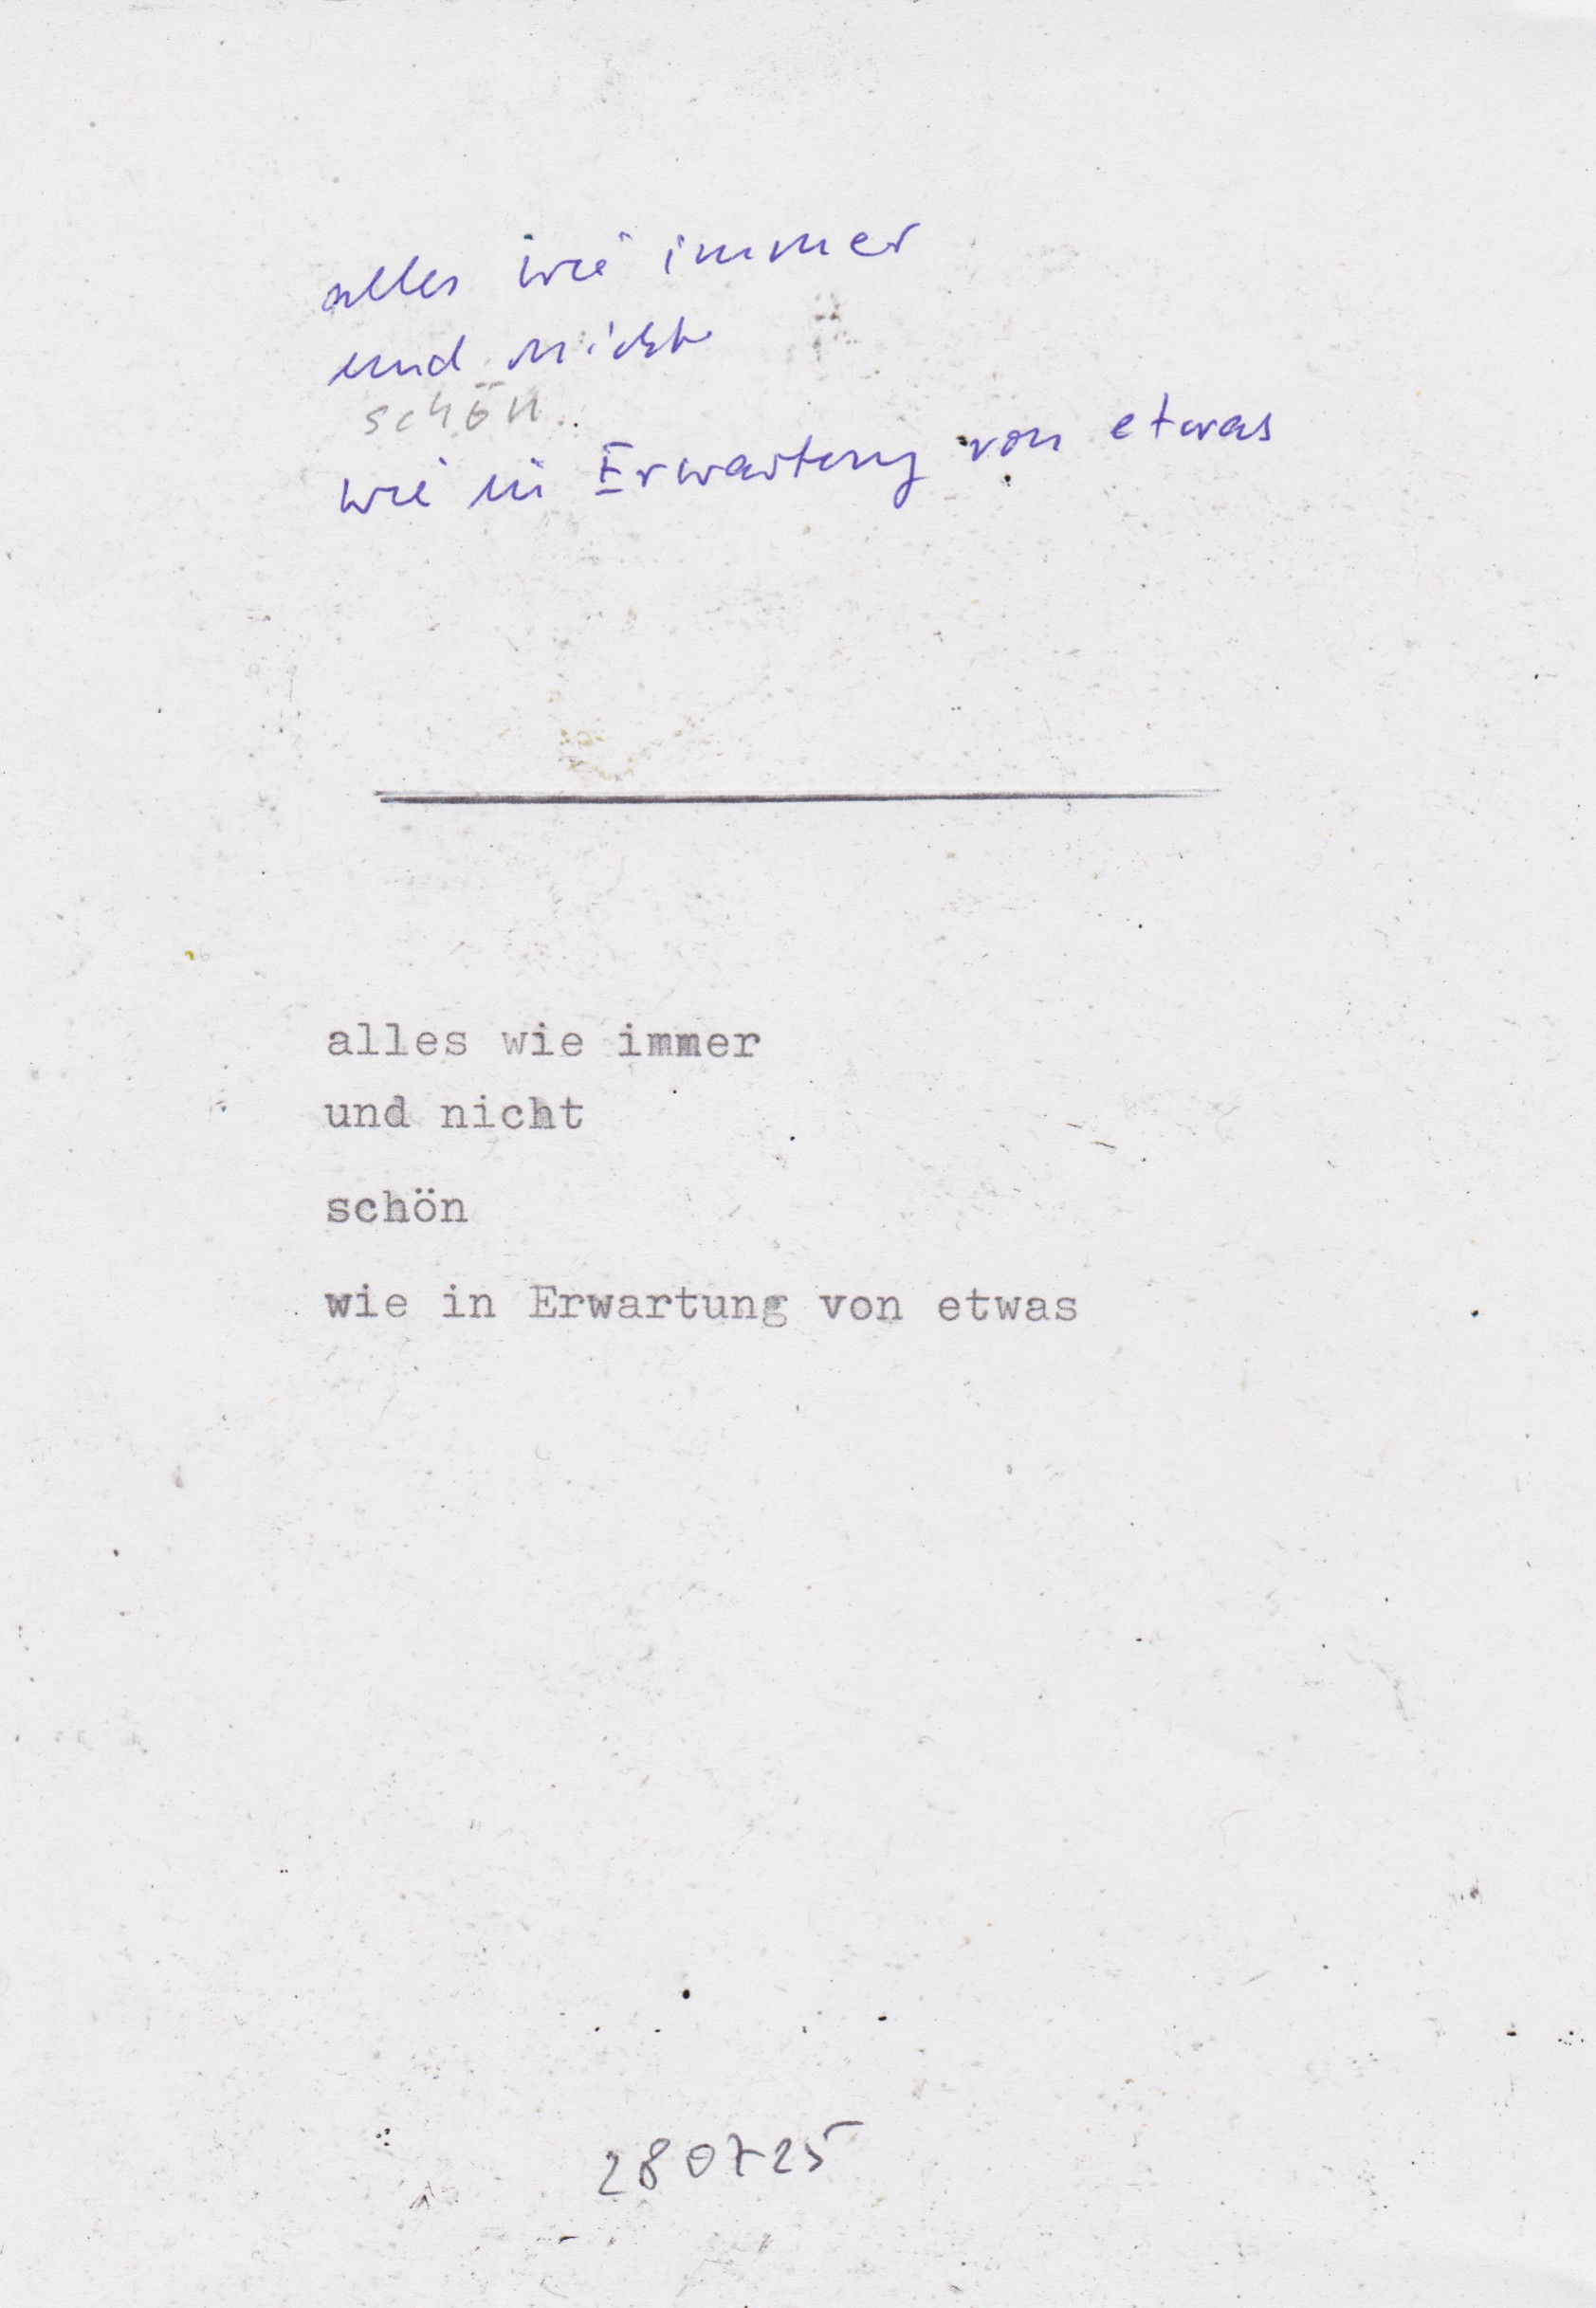 alles wie immer
und nicht
schön
wie in Erwartung von etwas
alles wie immer
und nicht
schön
wie in Erwartung von etwas
280725